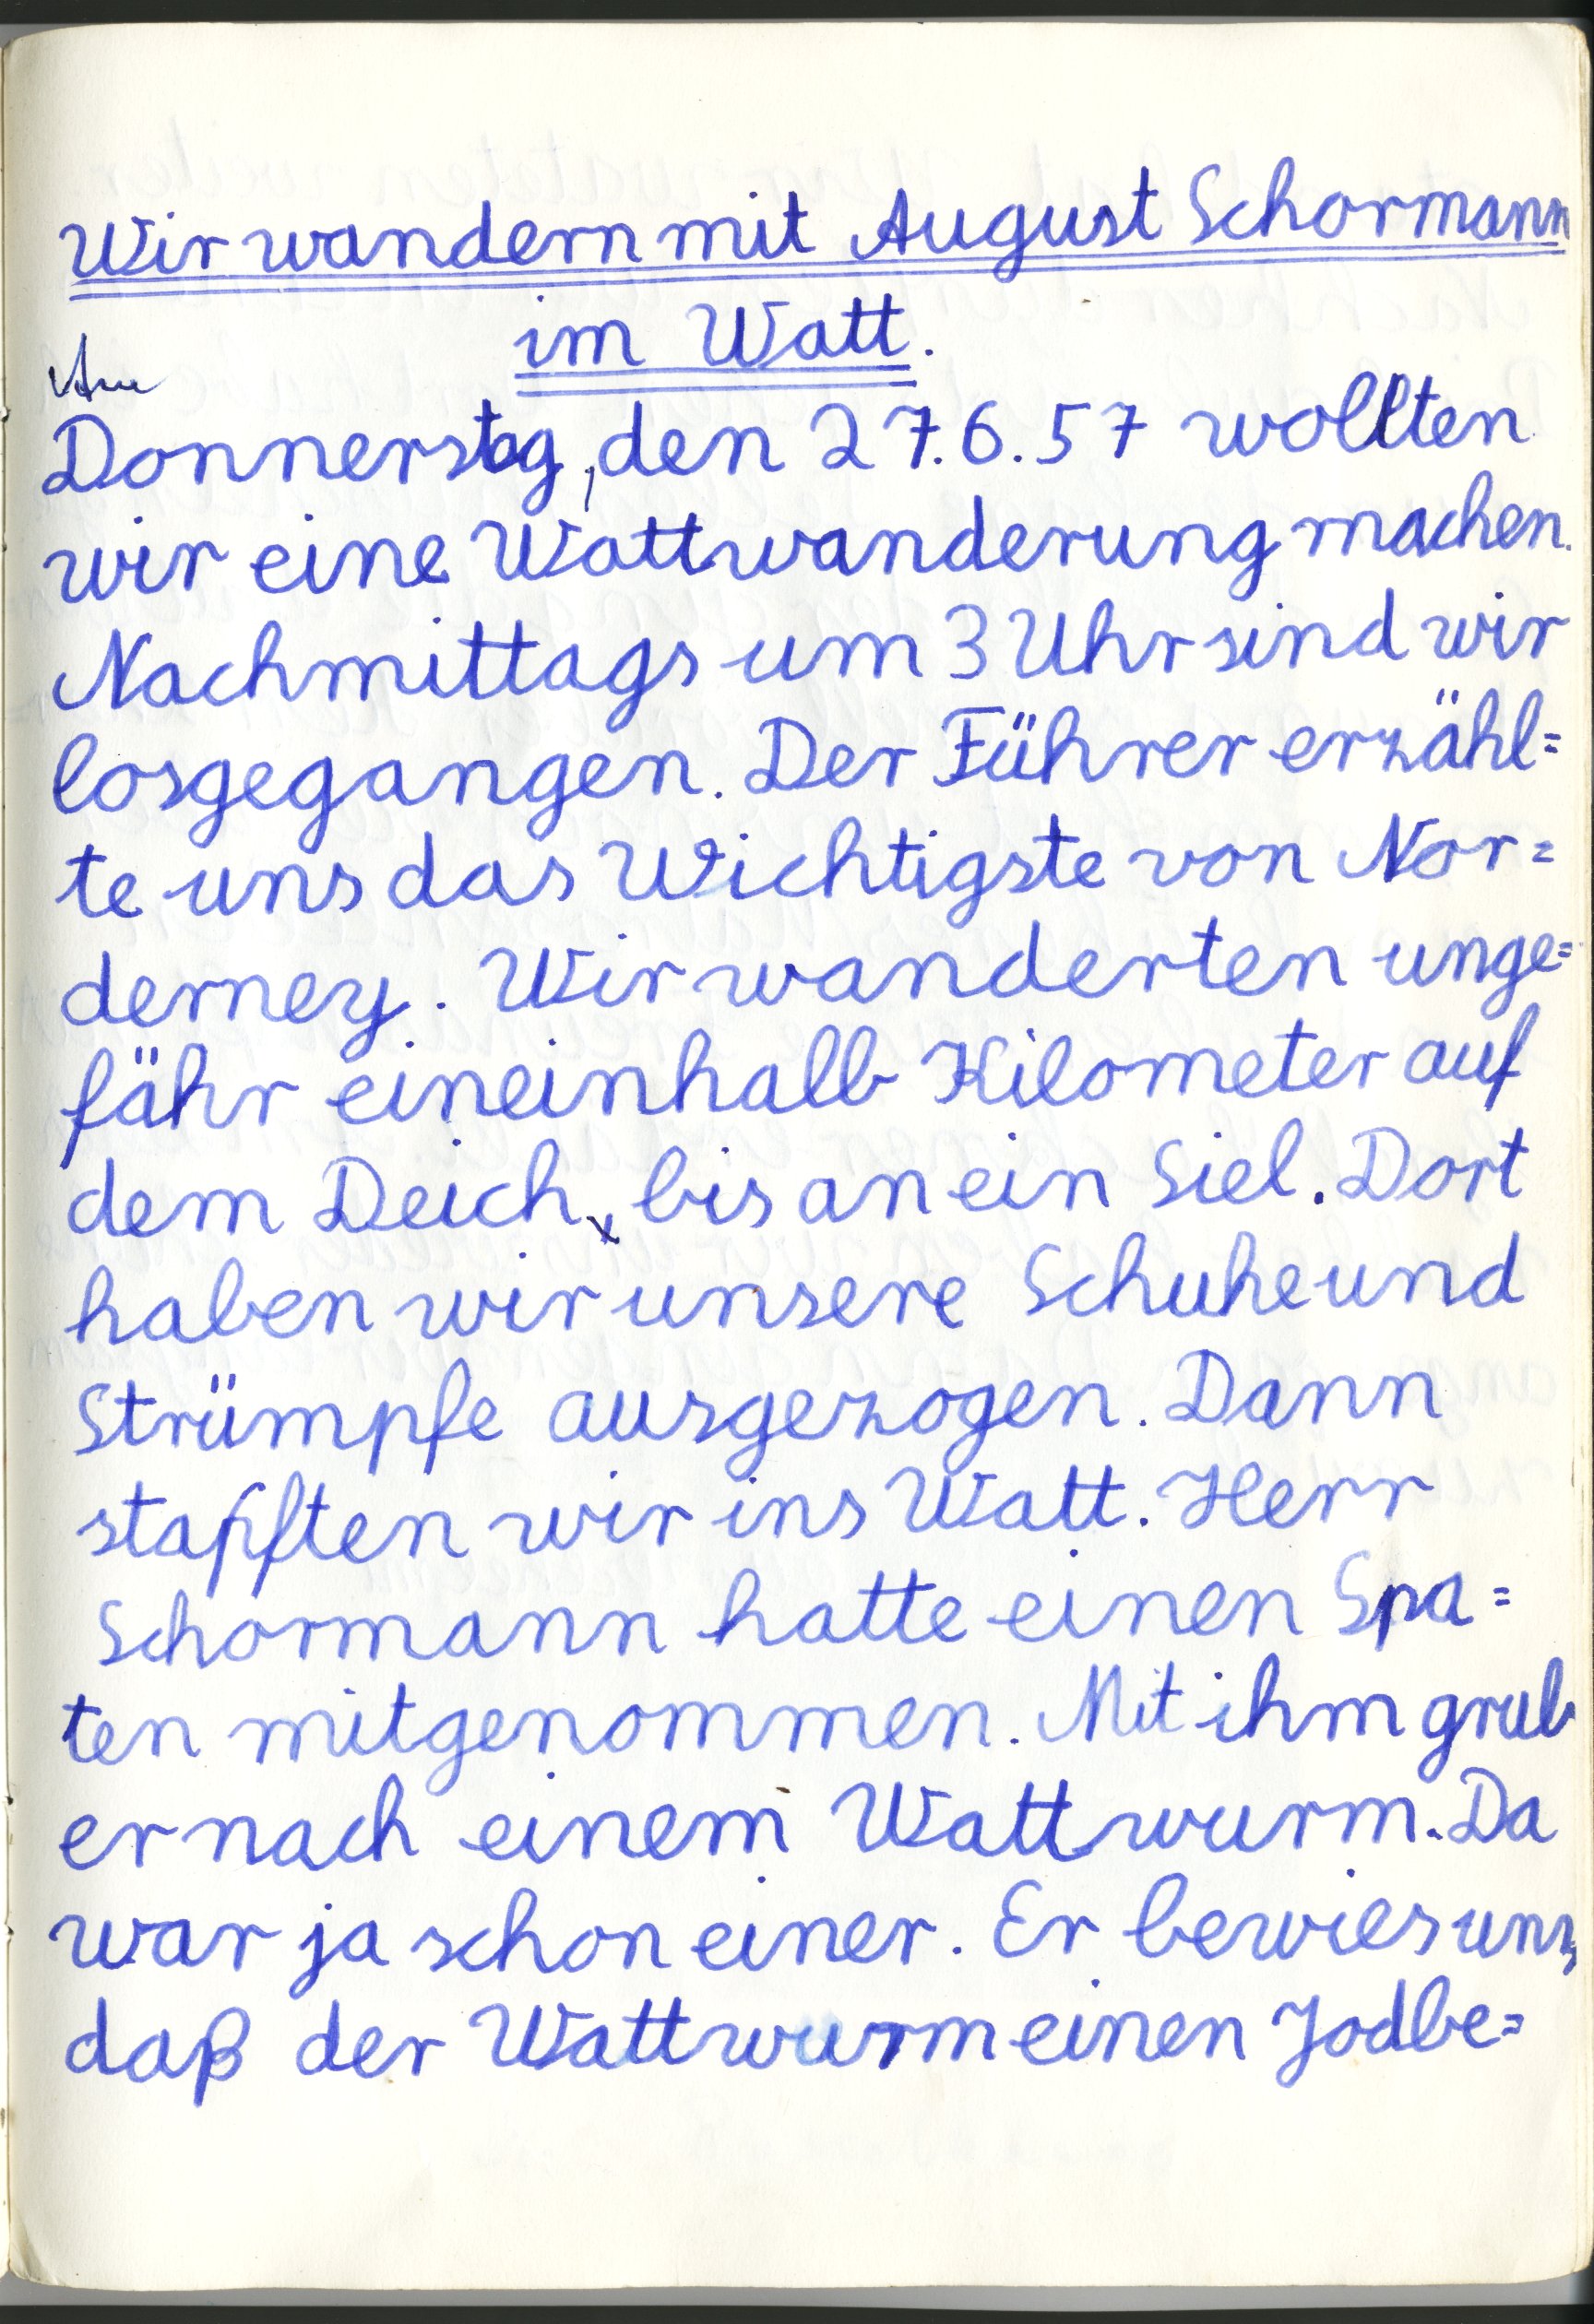 Wir wandern mit August Schormann
im Watt.
Am
Donnerstag, den 27.6.57 wollten
wir eine Wattwanderung machen.
Nachmittags um 3 Uhr sind wir
losgegangen. Der Führer erzähl=
te uns das Wichtigste von Nor=
derney. Wir wanderten unge=
fähr eineinhalb Kilometer auf
dem Deich, bis an ein Siel. Dort
haben wir unsere Schuhe und
Strümpfe ausgezogen. Dann
stapften wir ins Watt. Herr
Schormann hatte einen Spa=
ten mitgenommen. Mit ihm grub
er nach einem Wattwurm. Da
war ja schon einer. Er bewies uns,
daß der Wattwurm einen Jodbe=